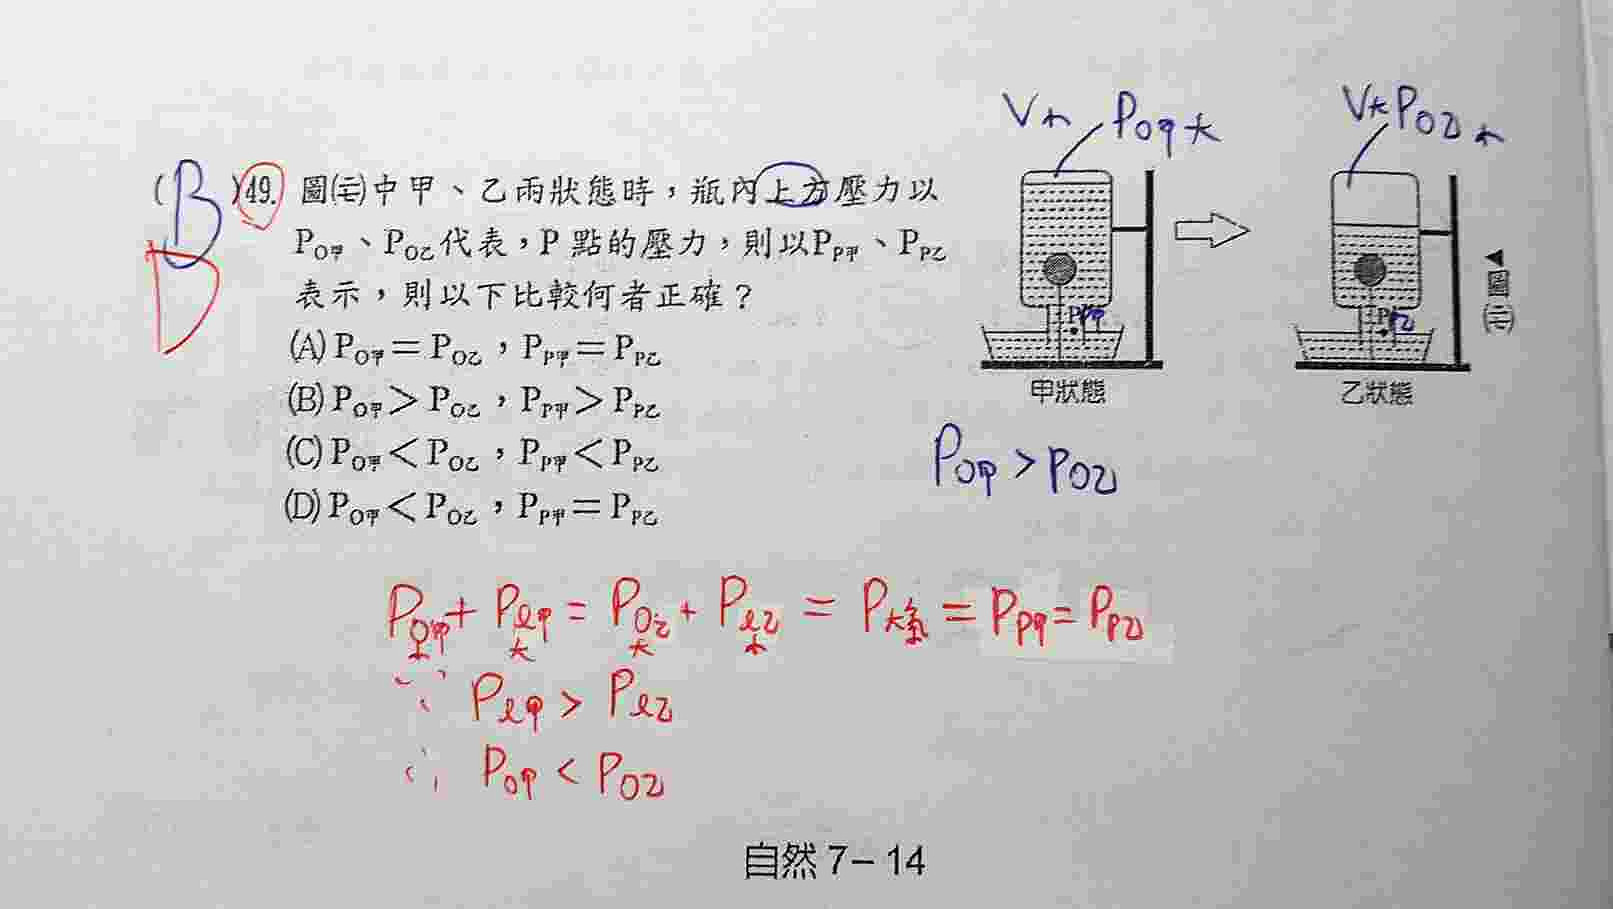 V小 P_O甲 大
V大 P_O乙 小
(B)49. 圖(三七)中甲、乙兩狀態時，瓶內上方壓力以
D
P_O甲、P_O乙代表，P點的壓力，則以P_P甲、P_P乙
表示，則以下比較何者正確？
(A) P_O甲＝P_O乙，P_P甲＝P_P乙
(B) P_O甲＞P_O乙，P_P甲＞P_P乙
(C) P_O甲＜P_O乙，P_P甲＜P_P乙
(D) P_O甲＜P_O乙，P_P甲＝P_P乙
甲狀態
乙狀態
P_O甲 > P_O乙
P_O甲 + P_ℓ甲 = P_O乙 + P_ℓ乙 = P_大氣 = P_P甲 = P_P乙
小 大 大 小
∵ P_ℓ甲 > P_ℓ乙
∴ P_O甲 < P_O乙
自然 7－14